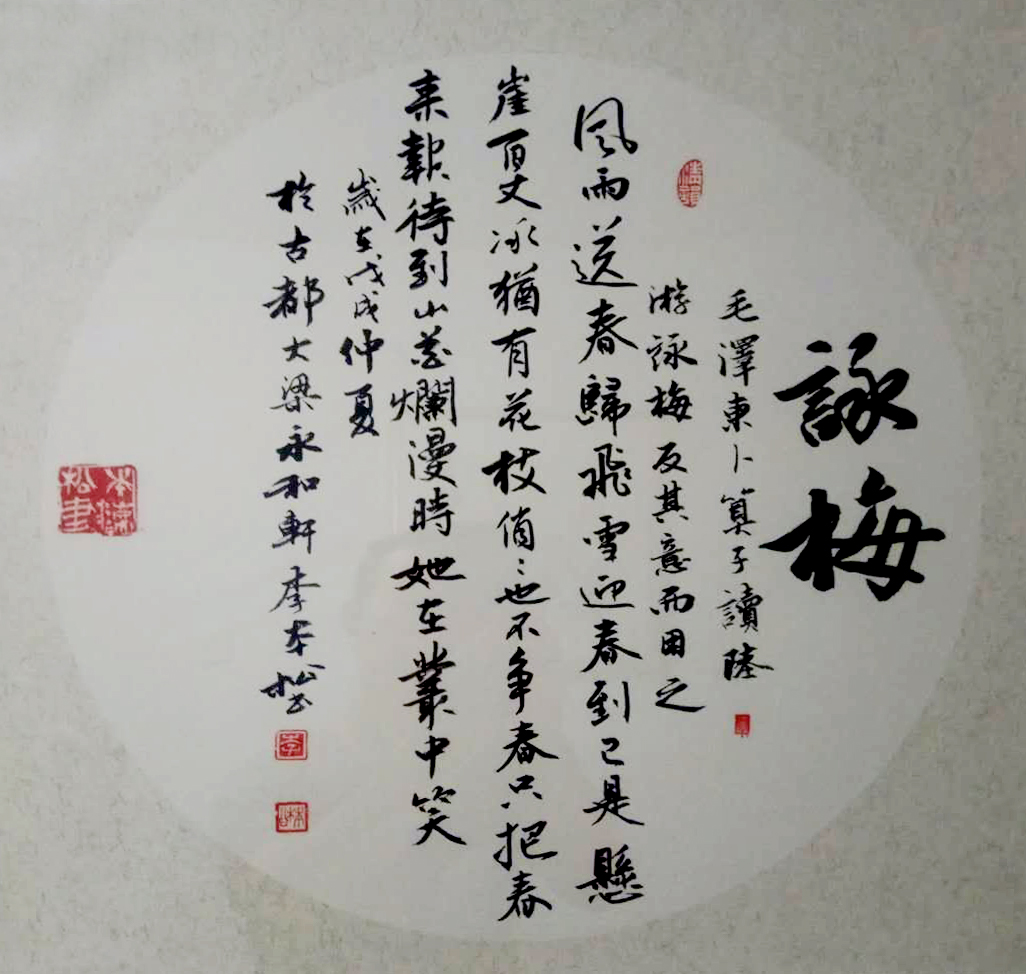 詠梅
毛澤東卜算子讀陸
游詠梅反其意而用之
風雨送春歸飛雪迎春到已是懸
崖百丈冰猶有花枝俏:也不争春只把春
来報待到山花爛漫時她在叢中笑
歲在戊戌仲夏
於古都大梁永和軒李本松書
李
本濤
松畫